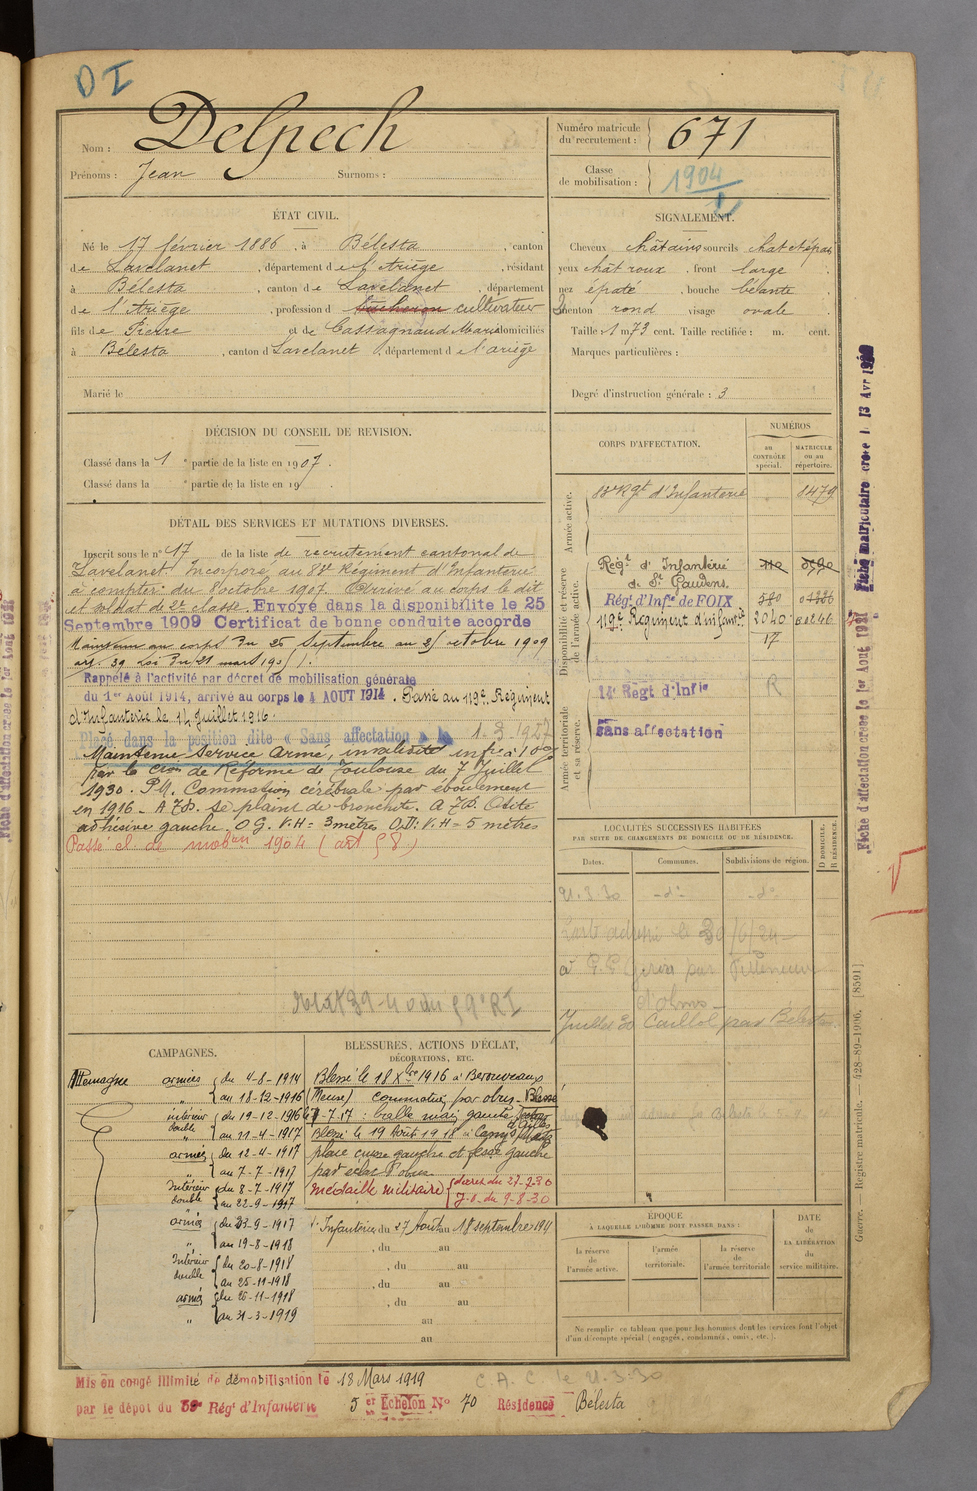 DI
Nom : Delpech
Prénoms : Jean Surnoms :
Numéro matricule du recrutement : 671
Classe de mobilisation : 1904
ÉTAT CIVIL.
Né le 17 février 1886, à Bélesta, canton
de Lavelanet, département de l'Ariège, résidant
à Bélesta, canton de Lavelanet, département
de l'Ariège, profession de bûcheron cultivateur
fils de Pierre et de Cassagnaud Marie domiciliés
à Bélesta, canton d Lavelanet, département d e l'ariège
Marié le
SIGNALEMENT.
Cheveux châtains sourcils chat et épais
yeux chât roux, front large
nez épaté, bouche béante
menton rond visage ovale
Taille 1 m 73 cent. Taille rectifiée : m. cent.
Marques particulières :
Degré d'instruction générale : 3
DÉCISION DU CONSEIL DE REVISION.
Classé dans la 1 e partie de la liste en 1907.
Classé dans la e partie de la liste en 19
DÉTAIL DES SERVICES ET MUTATIONS DIVERSES.
Inscrit sous le n° 17 de la liste de recrutement cantonal de
Lavelanet. Incorporé au 83e Régiment d'Infanterie
à compter du 8 octobre 1907. Arrivé au corps le dit
et soldat de 2e classe. Envoyé dans la disponibilité le 25
Septembre 1909 Certificat de bonne conduite accordé
Maintenu au corps du 26 Septembre au 2 octobre 1909
art. 39 Loi du 21 mars 1905.
Rappelé à l'activité par décret de mobilisation générale
du 1er Août 1914, arrivé au corps le 4 AOUT 1914. Passé au 119e Régiment
d'Infanterie le 14 Juillet 1916.
Placé dans la position dite « Sans affectation » le 1.3.1927
Maintenu Service Armé, invalidité infre à 10%
par la Cion de Réforme de Toulouse du 7 Juillet
1930. PM. Commotion cérébrale par éboulement
en 1916 - A.7.D. se plaint de bronchite. A.7.D. Otite
adhésive gauche. OG. V.H = 3 mètres O.D: V.H = 5 mètres
Passé cl. de mobon 1904 (art 58)
CORPS D'AFFECTATION.
NUMÉROS
AU CONTRÔLE spécial.
MATRICULE ou au répertoire.
Armée active.
83e Rgt d'Infanterie 8479
Disponibilité et réserve de l'armée active.
Régt d'Infanterie
de St Gaudens.
Régt d'Infie de FOIX
119e Régiment d'infantie 2040
17
Armée territoriale et sa réserve.
14e Régt d'Infie R
Sans affectation
LOCALITÉS SUCCESSIVES HABITÉES
PAR SUITE DE CHANGEMENTS DE DOMICILE OU DE RÉSIDENCE.
Dates. Communes. Subdivisions de région.
D DOMICILE. R RÉSIDENCE.
21.3.30 -do- -do-
d'olmes
Juillet 30 Caillol par Bélesta
CAMPAGNES.
Allemagne armées du 4-8-1914
" au 18-12-1916
intérieur du 19-12-1916
double au 11-4-1917
armées du 12-4-1917
" au 7-7-1917
Intérieur du 8-7-1917
double au 22-9-1917
armées du 23-9-1917
" au 19-8-1918
Intérieur du 20-8-1918
double au 25-11-1918
armées du 26-11-1918
" au 31-3-1919
BLESSURES, ACTIONS D'ÉCLAT,
DÉCORATIONS, ETC.
Blessé le 18 Xbre 1916 à Bezonvaux
(Meuse) commotion par obus - Blessé
le 7-7-17 : balle main gauche
Blessé le 19 Août 1918 à
plaie cuisse gauche et fesse gauche
par éclat d'obus
médaille militaire décret du 27-7-30
J.O. du 9-8-30
Infanterie du 27 Août au 18 septembre 1911
, du au
, du au
, du au
au
au
ÉPOQUE
À LAQUELLE L'HOMME DOIT PASSER DANS :
la réserve de l'armée active.
l'armée territoriale.
la réserve de l'armée territoriale
DATE de LA LIBÉRATION du service militaire.
Ne remplir ce tableau que pour les hommes dont les services font l'objet
d'un décompte spécial (engagés, condamnés, omis, etc.).
Mis en congé illimité de démobilisation le 13 Mars 1919
par le dépôt du 59e Régt d'Infanterie 5 er Échelon No 70 Résidence Bélesta
C.A.C. le 21-3-30
Guerre. — Registre matricule. — 428-89-1906. [8591]
Fiche d'affectation créée le 1er Aout 1921